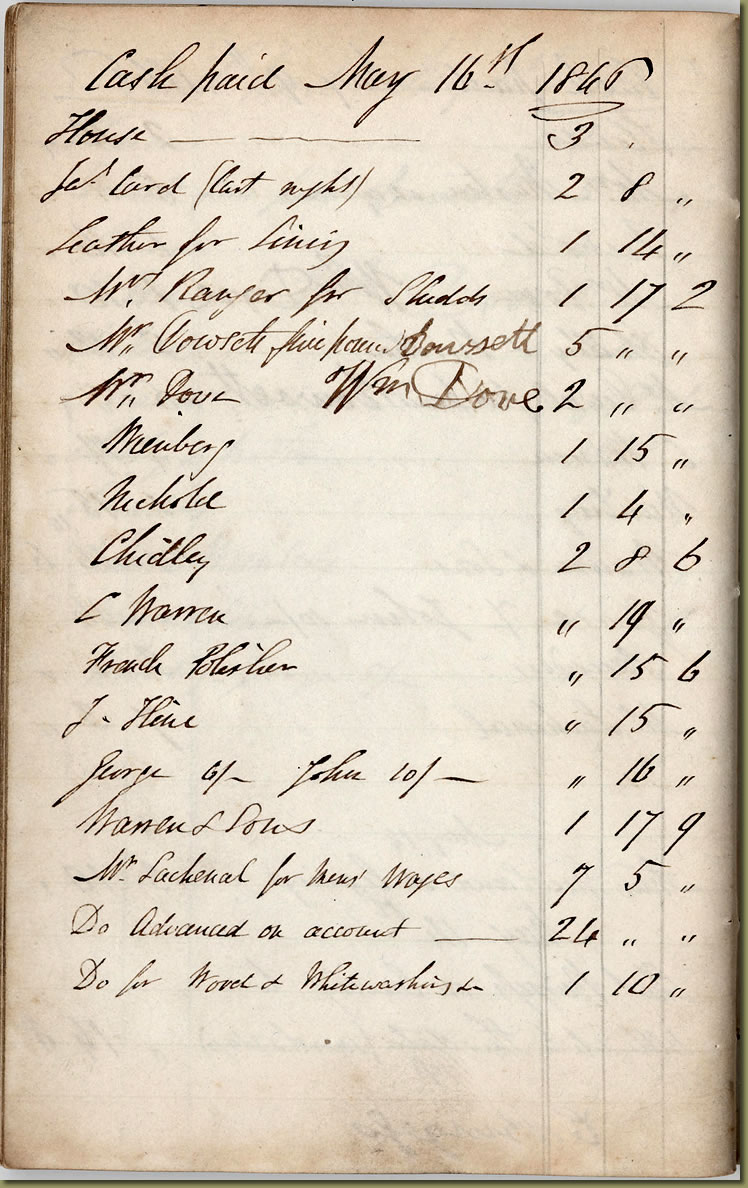 Cash paid May 16th 1846
House — — 3 .
Jas Card (last night) 2 8 "
Leather for Lining 1 14 "
Mrs. Ranger for Studds 1 17 2
Mr. Dowsett five pound Dowsett 5 " "
Mr. Dove Wm Dove 2 " "
1 15 "
Nickole 1 4 "
Chidley 2 8 6
C Warren " 19 "
French Polisher " 15 6
J. Hine " 15 "
George 6/- John 10/- — " 16 "
Warren & Sons 1 17 9
Mr. Lachenal for Mens' Wages 7 5 "
Do Advanced on account — 24 " "
Do for Wood & Whitewashing &c 1 10 "